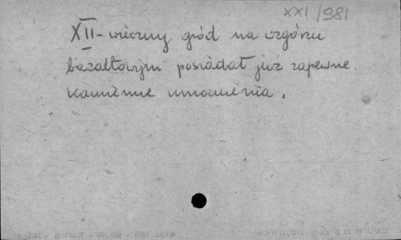 XXI/981
XII-wieczny gród na wzgórzu
bazaltowym posiadał już zapewne
kamienne umocnienia.